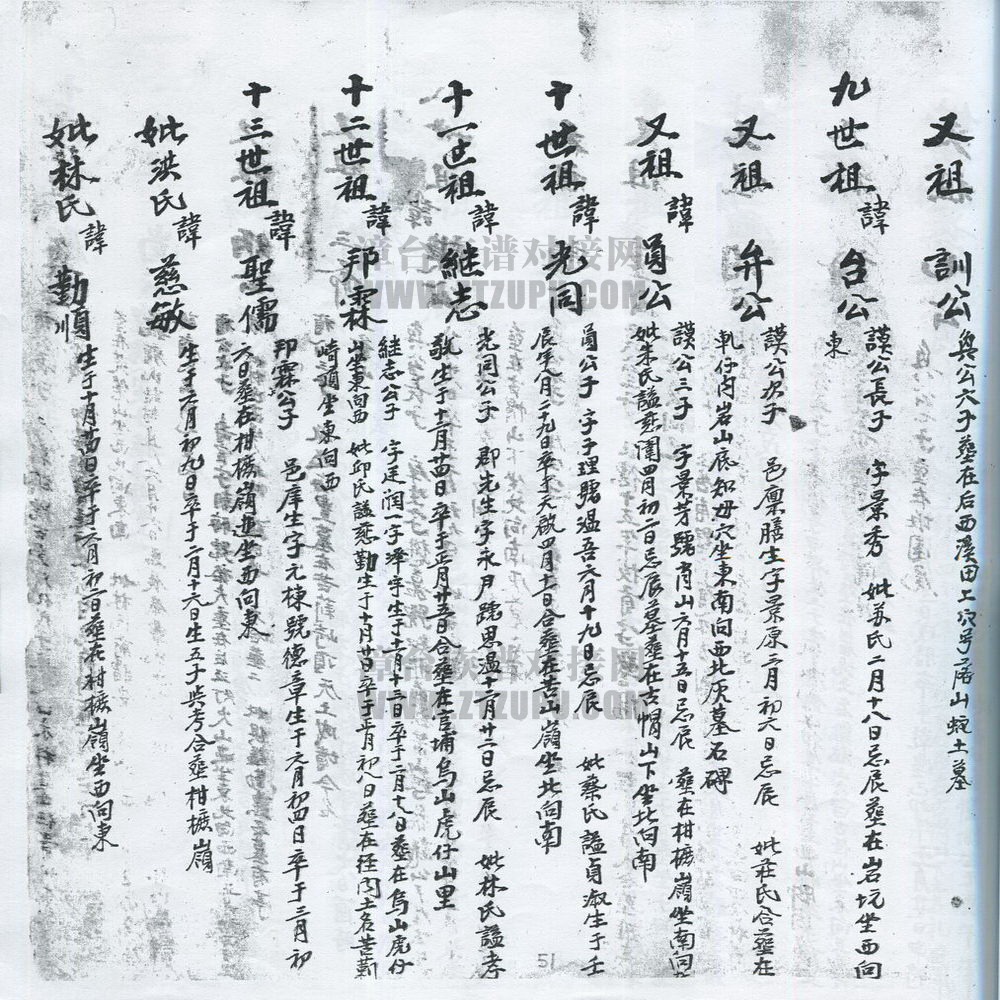 又祖 訓公 奥公六子葬在后西溪田上穴号
九世祖諱 台公 謨公長子 字景秀 妣苏氏二月十八日忌辰葬在岩坑坐西向
東
又祖 弁公 謨公次子 邑廪膳生字景原二月初六日忌辰 妣莊氏合葬在
軋仔内岩山底知母穴坐東南向西北灰墓石碑
又祖諱 員公 謨公三子 字景芳號肖山六月十五日忌辰 葬在柑樜嶺坐南向
妣朱氏謚慈 四月初二日忌辰墓葬在古帽山下坐北向南
十世祖諱 光同 員公子 字子理號温吾六月十九日忌辰 妣蔡氏謚貞淑生于壬
辰年八月二十九日卒于天啟四月十一日合葬在苦山嶺坐北向南
十一世祖諱 継志 光同公子 郡先生字永尹號思温十二月廿二日忌辰 妣林氏謚孝
敬生于十二月廿四日卒于正月廿五日合葬在官埔烏山虎仔山里
十二世祖諱 邦霖 継志公子 字廷潤一字澤宇生于十二月十三日卒于二月十八日葬在烏山虎仔
山坐東向西 妣邱氏謚慈勤生于十月廿日卒于正月初八日葬在径内土名苦
崎頂坐東向西
十三世祖諱 聖儒 邦霖公子 邑庠生字元棟號德章生于六月初四日卒于三月初
六日葬在柑樜嶺边坐西向東
妣洪氏諱 慈敏 生于六月初九日卒于二月十六日生五子與考合葬柑樜嶺
妣林氏諱 勤順 生于十月 日卒于六月初二日葬在柑樜嶺坐西向東
漳台族谱对接网
WWW.ZTZUPU.COM
漳台族谱对接网
WWW.ZTZUPU.COM
51